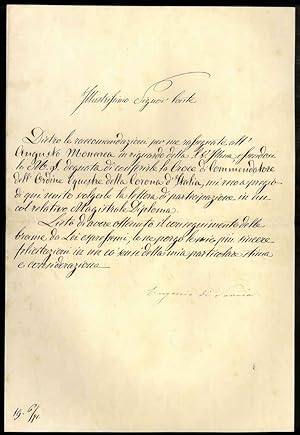 Illustrissimo Signor Conte
Dietro le raccomandazioni per me rassegnate all'
Augusto Monarca in riguardo della S. V. Illma, essendosi
la M. S. degnata di conferirle la Croce di Commendatore
dell'Ordine Equestre della Corona d'Italia, mi reco a pregio
di qui unito volgerle la lettera di partecipazione in un
col relativo Magistrale Diploma.
Lieto di avere ottenuto il conseguimento della
brama da Lei espressami, le ne porgo le mie più sincere
felicitazioni in un co' sensi della mia particolar stima
e considerazione
Eugenio di Savoia
19.